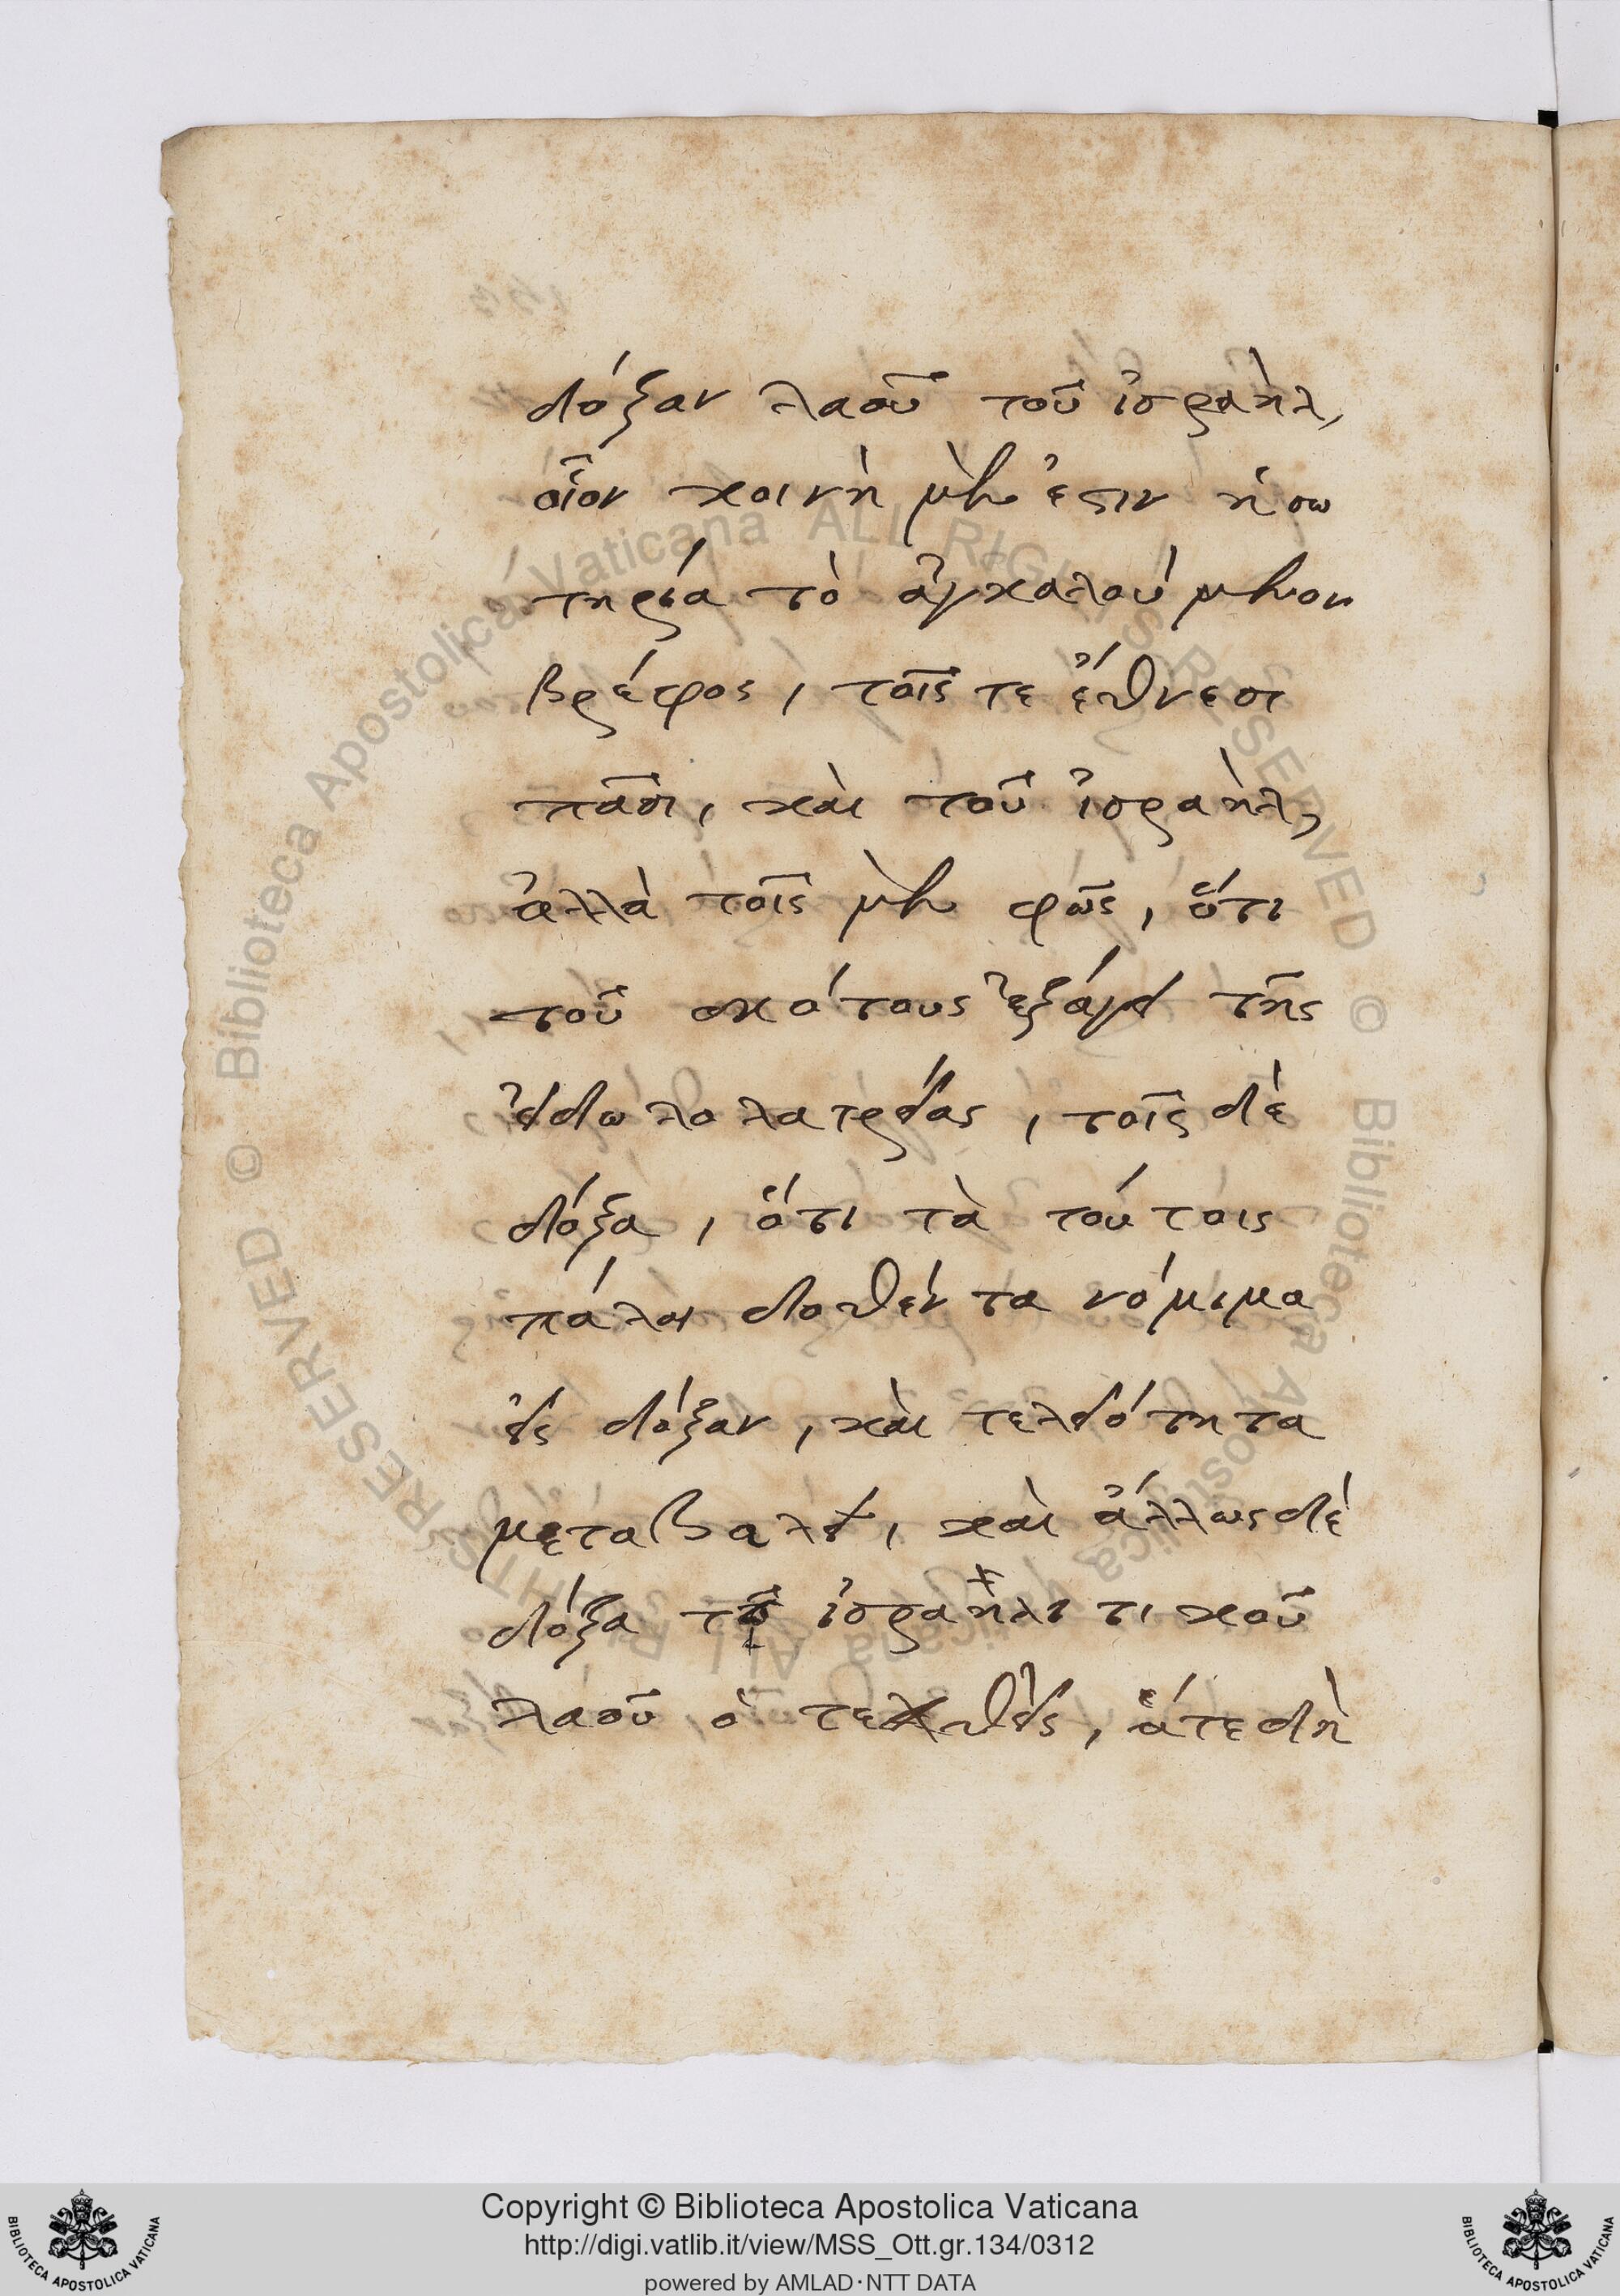 δόξαν λαοῦ τοῦ ἰσραὴλ,
οἷον κοινὴ μὲν ἐστιν ἡ σω
τηρία τὸ ἀγκαλούμενον
βρέφος, τοῖς τε ἔθνεσι
πᾶσι, καὶ τοῦ ἰσραὴλ,
ἀλλὰ τοῖς μὲν φῶς, ὅτι
τοῦ σκότους ἐξάγει τῆς
εἰδωλολατρείας, τοῖς δὲ
δόξα, ὅτι τὰ τούτοις
πάλαι δοθέντα νόμιμα
εἰς δόξαν, καὶ τελειότητα
μεταβαλεῖ, καὶ ἄλλως δὲ
δόξα τοῦ ἰσραηλιτικοῦ
λαοῦ ὁ τεχθεὶς, ἅτε δὴ
Copyright © Biblioteca Apostolica Vaticana
http://digi.vatlib.it/view/MSS_Ott.gr.134/0312
powered by AMLAD·NTT DATA